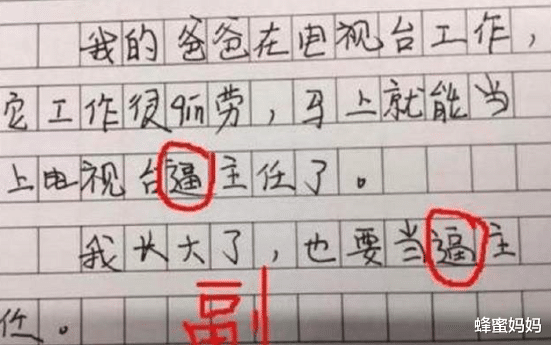 我的爸爸在电视台工作，
它工作很qin劳，马上就能当
上电视台逼主任了。
我长大了，也要当逼主
任。
副
蜂蜜妈妈